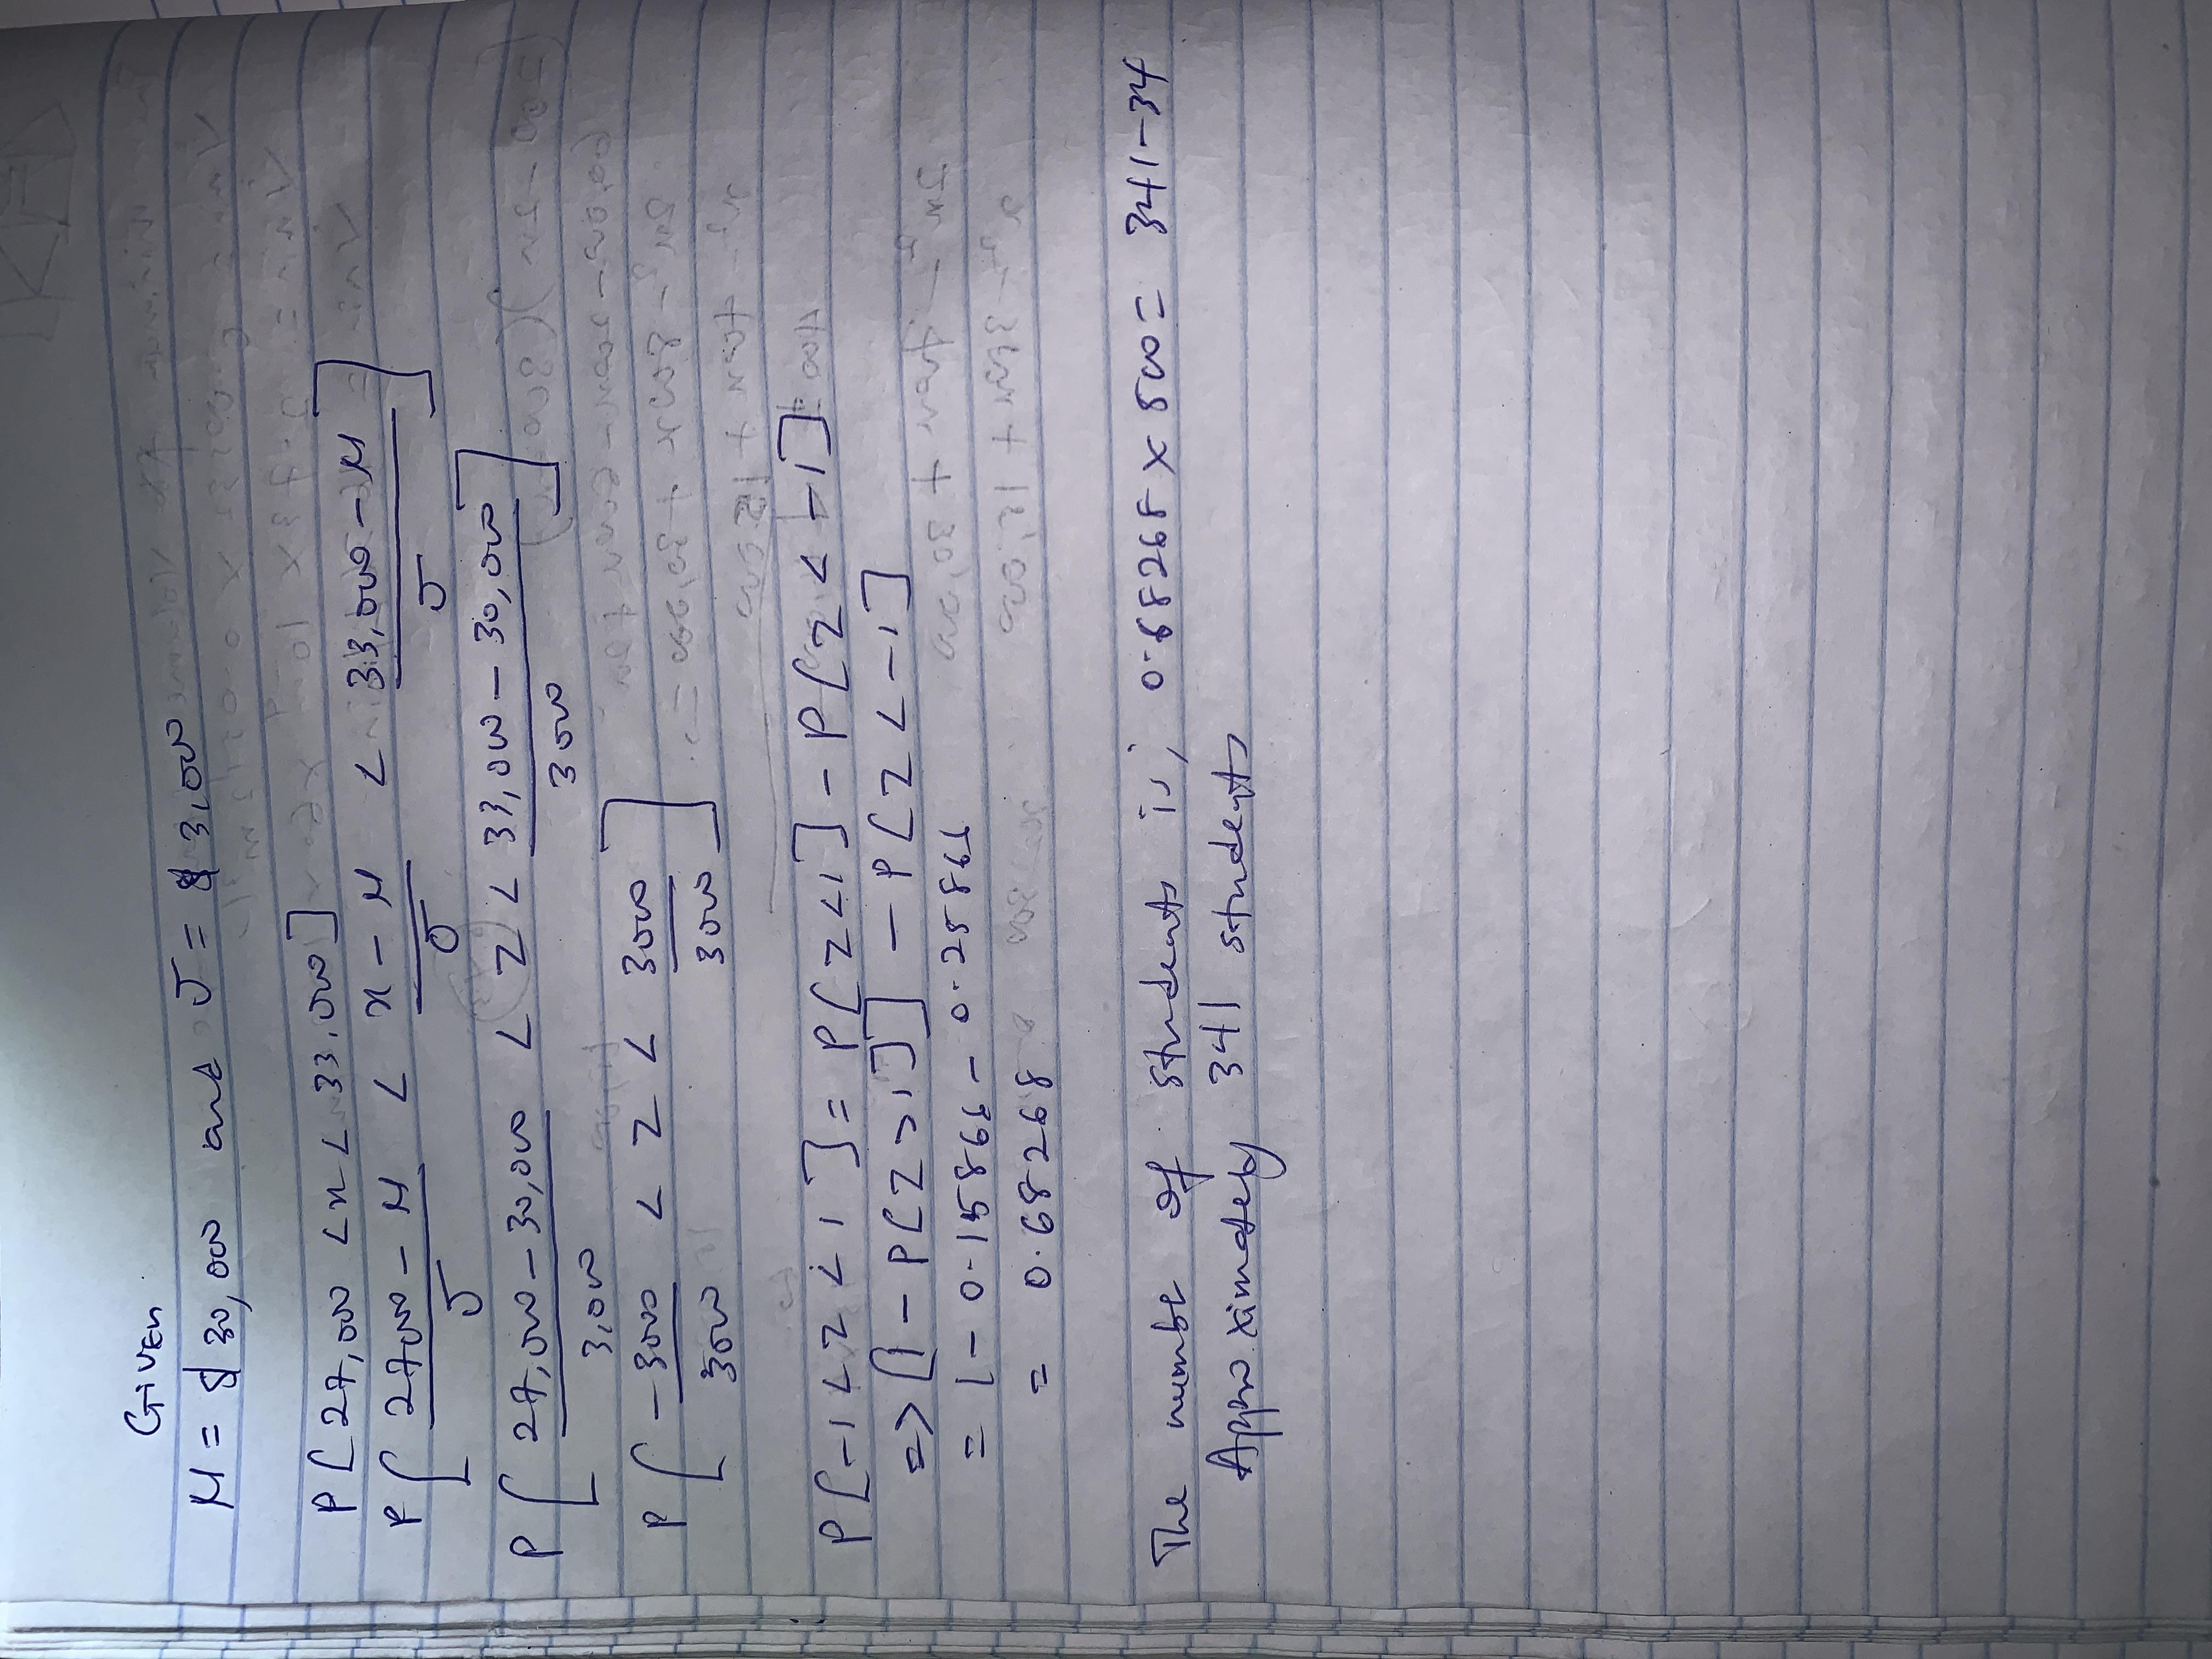 GIVEN
μ = $ 30,000 and σ = $ 3,000
P [ 27,000 < x < 33,000 ]
P [ 27000 - μ / σ < x - μ / σ < 33,000 - μ / σ ]
P [ 27,000 - 30,000 / 3,000 < Z < 33,000 - 30,000 / 3000 ]
P [ -3000 / 3000 < Z < 3000 / 3000 ]
P [ -1 < Z < 1 ] = P [ Z < 1 ] - P [ Z < -1 ]
=> [ 1 - P [ Z > 1 ] ] - P [ Z < -1 ]
= 1 - 0.15866 - 0.25866
= 0.68268
The numbe of students is, 0.68268 x 500 = 341-34
Approximately 341 students